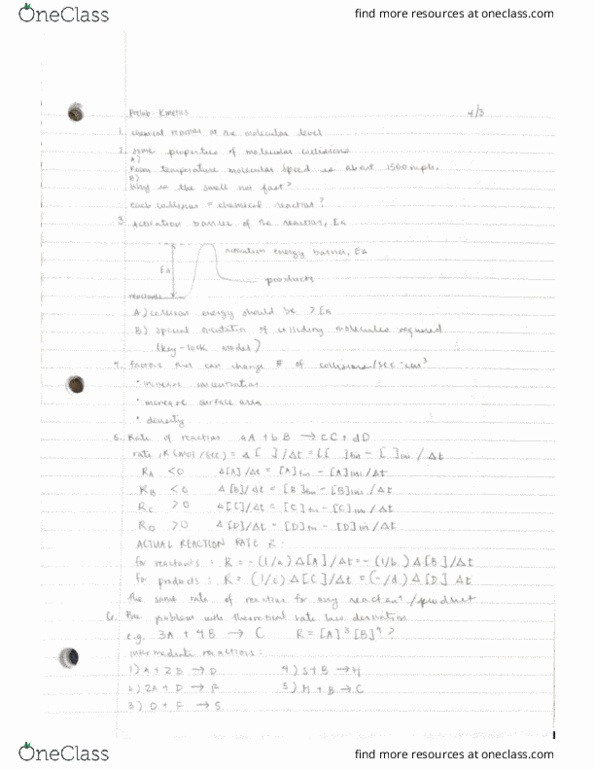 OneClass
find more resources at oneclass.com
Prelab: Kinetics 4/3
1. chemical reaction at the molecular level
2. some properties of molecular collisions
A)
Room temperature molecular speed is about 1500 mph.
B)
Why is the smell not fast?
each collision = chemical reaction?
3. Activation barrier of the reaction, Ea
activation energy barrier, Ea
Ea
products
reactants
A) collision energy should be > Ea
B) special orientation of colliding molecules required
(key-lock model)
4. factors that can change # of collisions/sec·cm³
· increase concentration
· increase surface area
· density
5. Rate of reaction aA + bB → cC + dD
rate, R (mol/sec) = Δ[ ]/Δt = ([ ]fin - [ ]ini/Δt
RA <0 Δ[A]/Δt = [A]fin - [A]ini/Δt
RB <0 Δ[B]/Δt = [B]fin - [B]ini/Δt
RC >0 Δ[C]/Δt = [C]fin - [C]ini/Δt
RD >0 Δ[D]/Δt = [D]fin - [D]ini/Δt
ACTUAL REACTION RATE R:
for reactants: R = -(1/a)Δ[A]/Δt = -(1/b)Δ[B]/Δt
for products: R = (1/c)Δ[C]/Δt = (-/d)Δ[D] Δt
the same rate of reaction for any reactant/product
6. The problem with theoretical rate law derivation
e.g. 3A + 4B → C R = [A]³[B]⁴?
intermediate reactions:
1) A + 2B → D 4) S + B → H
2) 2A + D → F 5) H + B → C
3) D + F → S
OneClass
find more resources at oneclass.com